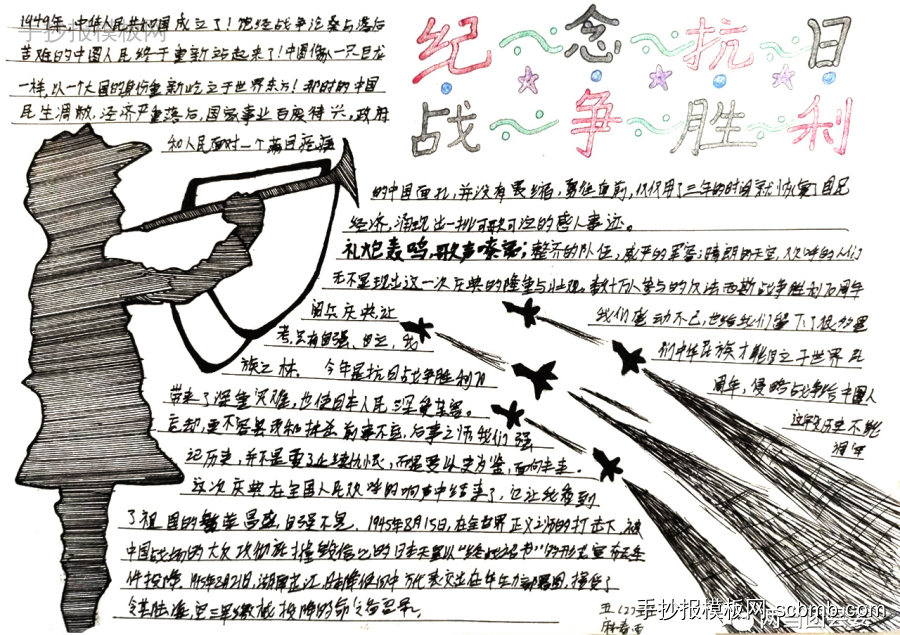 纪念抗日
战争胜利
1949年,中华人民共和国成立了!饱经战争沧桑与落后
苦难的中国人民终于重新站起来了!中国像一只巨龙
一样,以一个大国的身份重新屹立于世界东方!那时的中国
民生凋敝,经济严重落后,国家事业百废待兴,政府
和人民面对一个满目疮痍
的中国面孔,并没有畏缩,勇往直前,仅仅用了三年的时间就恢复了国民
经济,涌现出一批可歌可泣的感人事迹。
礼炮轰鸣,歌声嘹亮;整齐的队伍,威严的军容;晴朗的天空,欢呼的人们
无不显现出这一次庆典的隆重与壮观。数十万人参与的反法西斯战争胜利70周年
阅兵庆典让我们激动不已,也给我们留下了很多思
考,只有自强、自立,我们中华民族才能自立于世界民
族之林。今年是抗日战争胜利70周年,侵略战争给中国人
带来了深重灾难,也使日本人民深受其害。这段历史不能
忘却,更不容否认和抹杀。前事不忘,后事之师,我们强调牢
记历史,并不是要延续仇恨,而是要以史为鉴,面向未来。
这次庆典在全国人民欢呼的响声中结束了,它让我看到
了祖国的繁荣昌盛,自强不息。1945年8月15日,在全世界正义之师的打击下,被
中国战场的大反攻彻底摧毁信心的日本天皇以“终战诏书”的形式宣布无条
件投降。1945年8月21日,湖南芷江,日本降使向中方代表交出在华兵力部署图,接受了
令其陆海空三军缴械投降的命令备忘录。
五(2)
手抄报模板网
手抄报模板网-scbmb.com